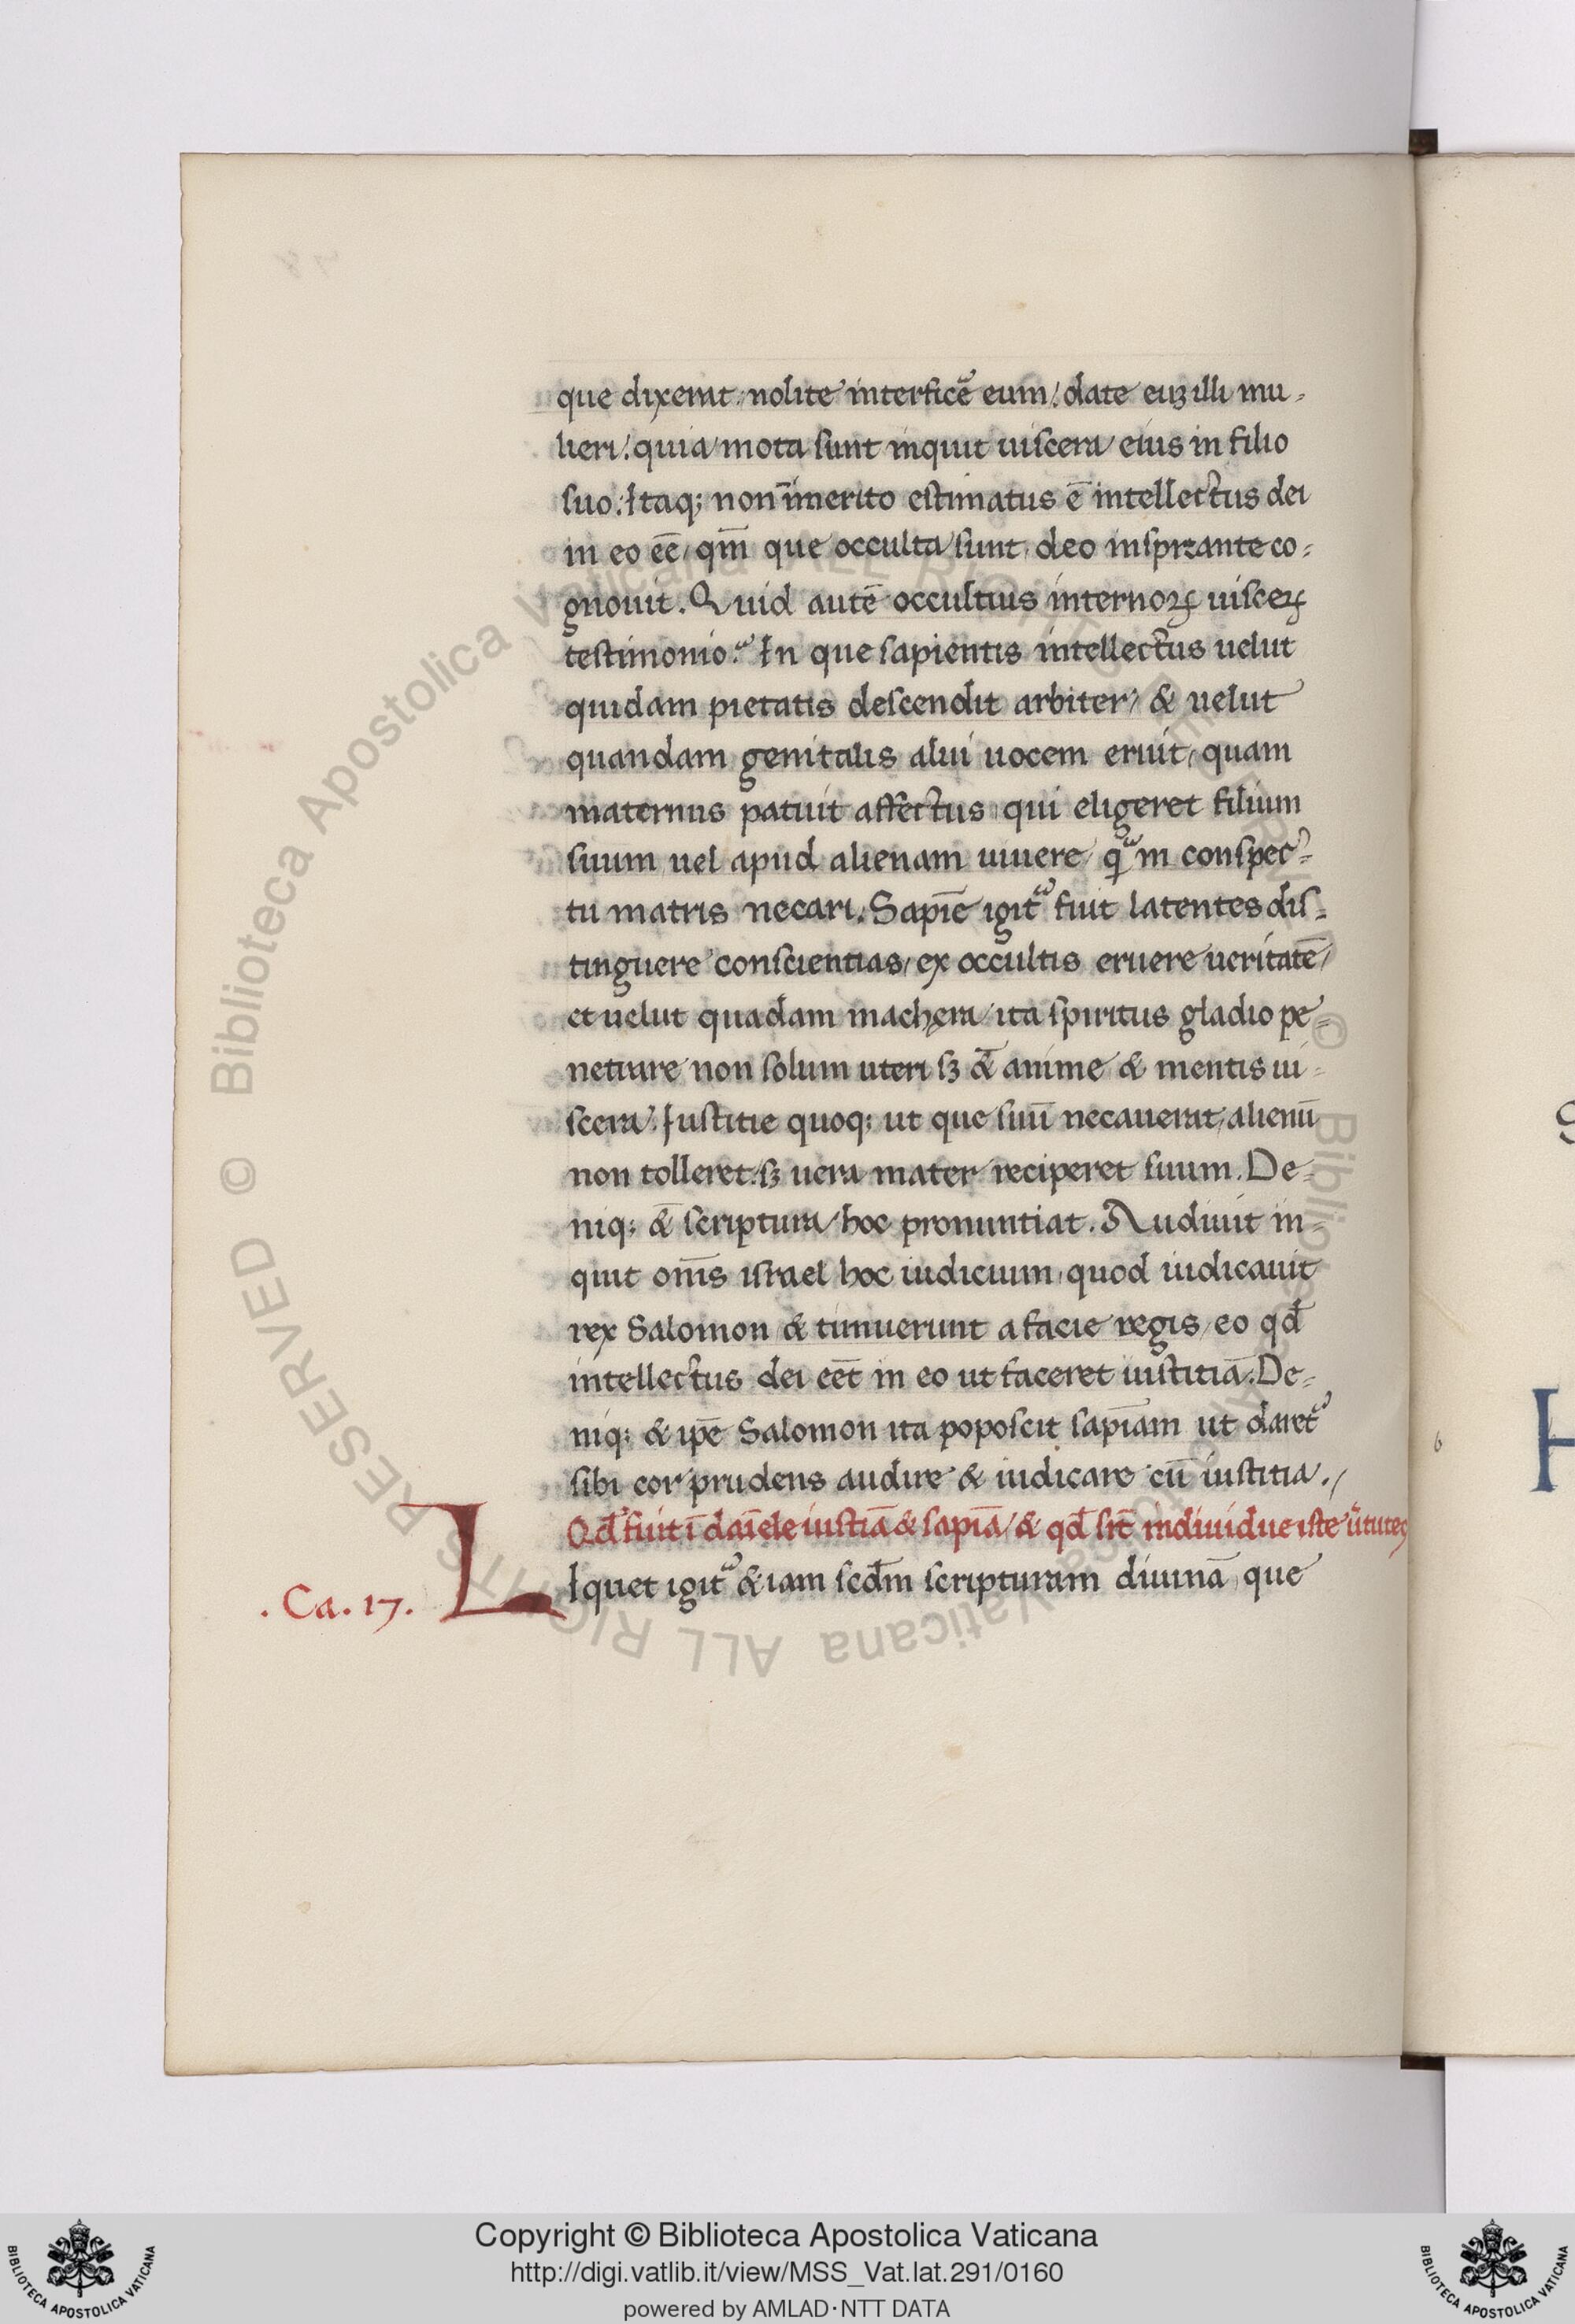 que dixerat: nolite interficẽ eum: date euꝫ illi mu-
lieri: quia mota sunt inquit uiscera eius in filio
suo. Itaq; non ĩmerito estimatus ē intellectus dei
in eo eē, qm̄ que occulta sunt, deo inspirante co-
gnouit. Quid autē occultius internoꝝ uisceꝝ
testimonio? In que sapientis intellectus uelut
quidam pietatis descendit arbiter, & uelut
quandam genitalis alui uocem eruit, quam
maternus patuit affectus, qui eligeret filium
suum uel apud alienam uiuere, qᵃm conspec-
tu matris necari. Sapiē igit᷑ fuit latentes dis-
tinguere conscientias, ex occultis eruere ueritatē,
et uelut quadam machera, ita spiritus gladio pe-
netrare non solum uteri sꝫ &̄ anime & mentis ui-
scera. Iustitie quoq; ut que suū necauerat, alienū
non tolleret: sꝫ uera mater reciperet suum. De-
niq; &̄ scriptura hoc pronuntiat. Audiuit in-
quit om̄s israel hoc iudicium, quod iudicauit
rex Salomon & timuerunt a facie regis, eo qđ
intellectus dei eēt in eo ut faceret iustitiā. De-
niq; & ip̄e Salomon ita poposcit sap̄iam ut daret᷑
sibi cor prudens audire & iudicare cū iustitia.
Qđ fuit ī daīele iustiā & sapiā, & qđ sīt indiuidue iste ũtutes
. Ca. 17. L Iquet igit᷑ & iam scđm scripturam diuinā, que
Copyright © Biblioteca Apostolica Vaticana
http://digi.vatlib.it/view/MSS_Vat.lat.291/0160
powered by AMLAD·NTT DATA
BIBLIOTECA APOSTOLICA VATICANA
BIBLIOTECA APOSTOLICA VATICANA